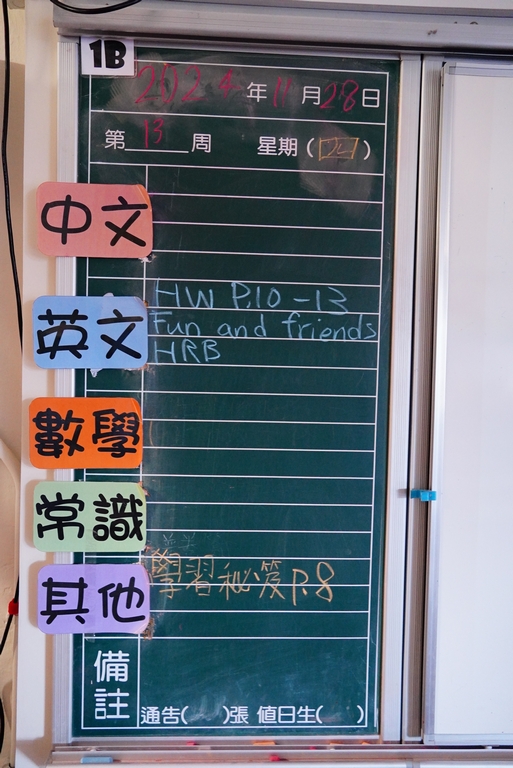 1B
2024年11月28日
第13周 星期(四)
中文
HW P.10-13
英文 Fun and friends
HRB
數學
常識
學習秘笈 P.8
其他
備註
通告( )張 值日生( )